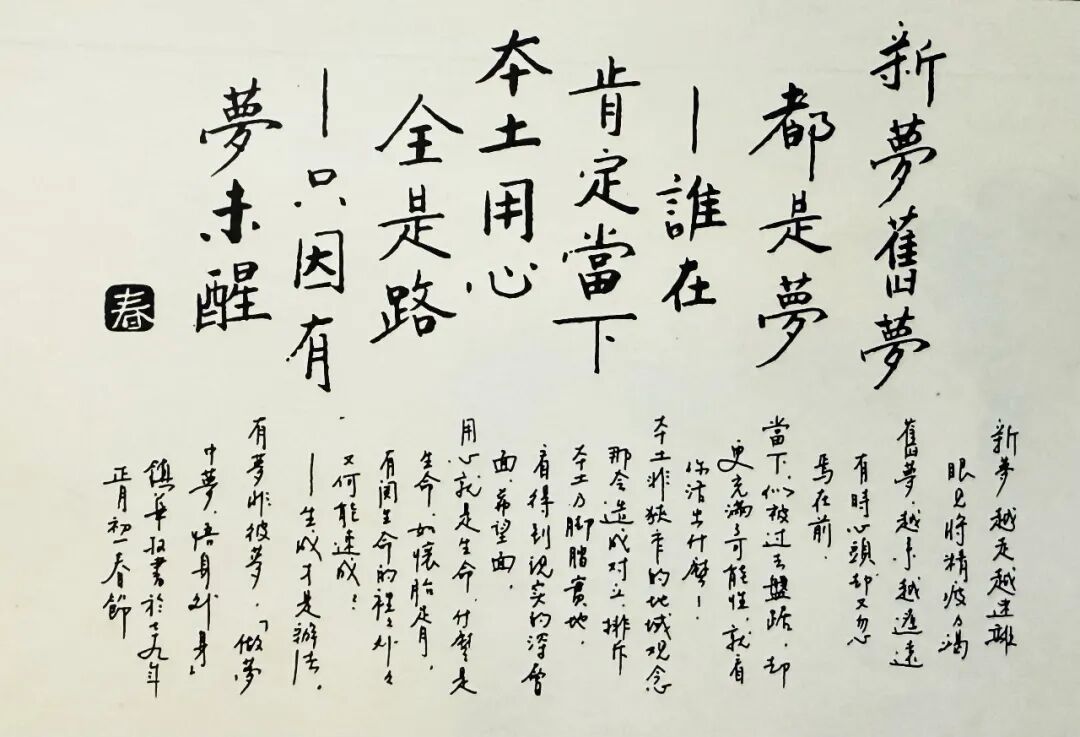 新夢舊夢
都是夢
—誰在
肯定當下
本土用心
全是路
—只因有
夢未醒
春
新夢越走越迷離
眼見將精疲力竭
舊夢越來越遙遠
有時心頭却又忽
焉在前．
當下．似被过去盤踞，却
更充滿了可能性，就看
你活出什麼！
本土非狹窄的地域观念
那会造成对立、排斥
本土乃脚踏實地．
看得到现实的深層
面，希望面．
用心就是生命 什麼是
生命，如懷胎足月．
有関生命的裡裡外外
又何能速成？
—生成才是辦法．
有夢非彼夢．「做夢
中夢，悟身外身」
鎮華叔書於七九年
正月初一春節